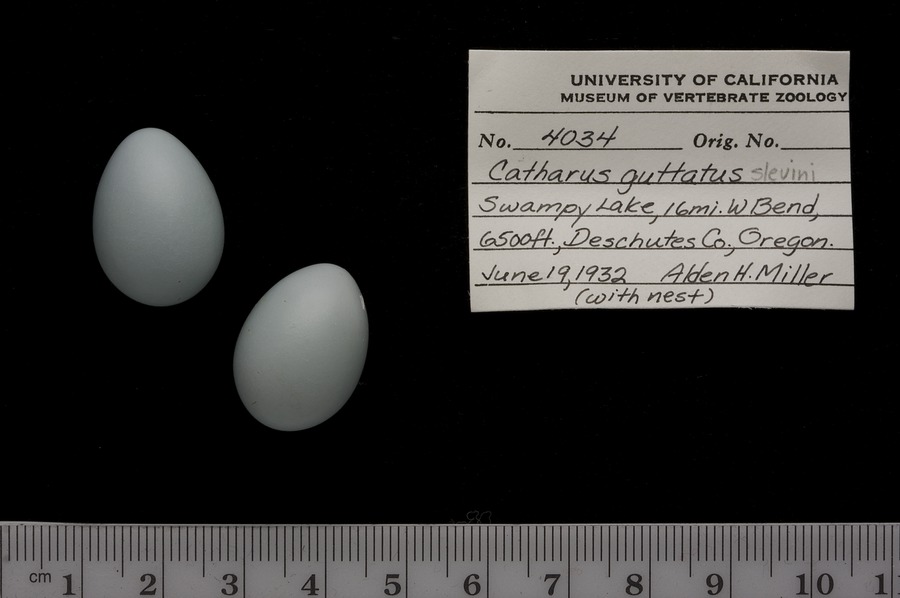 UNIVERSITY OF CALIFORNIA
MUSEUM OF VERTEBRATE ZOOLOGY
No. 4034 Orig. No.
Catharus guttatus slevini
Swampy Lake, 16mi. W Bend,
6500ft., Deschutes Co., Oregon.
June 19, 1932 Alden H. Miller
(with nest)
cm 1 2 3 4 5 6 7 8 9 10 1